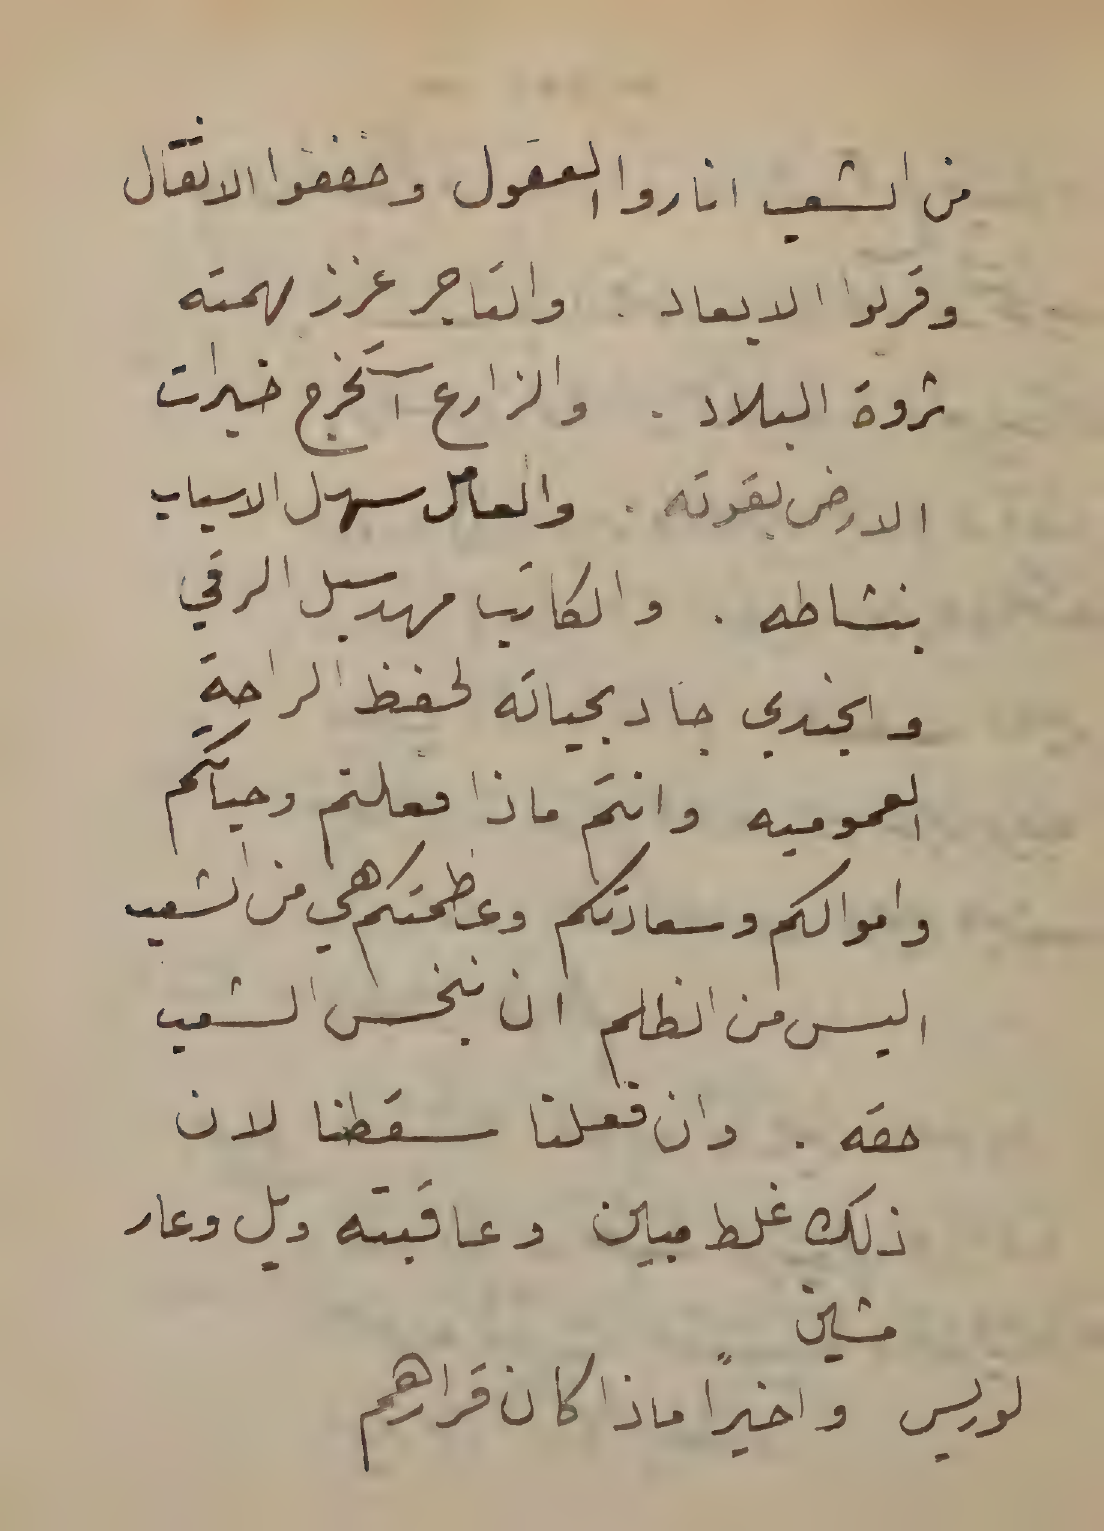 من الشعب اناروا العقول وخففوا الاثقال
وقربوا الابعاد . والتاجر عزز بهمته
ثروة البلاد . والزارع استخرج خيرات
الارض بقوته . والعامل سهل الاسباب
بنشاطه . والكاتب مهد سبل الرقي
والجندي جاد بحياته لحفظ الراحة
العموميه وانتم ماذا فعلتم وحياتكم
واموالكم وسعادتكم وعظمتكم هي من الشعب
اليس من الظلم ان نبخس الشعب
حقه . وان فعلنا سقطنا لان
ذلك غلط مبين وعاقبته ويل وعار
مشين
لوريس واخيراً ماذا كان قرارهم